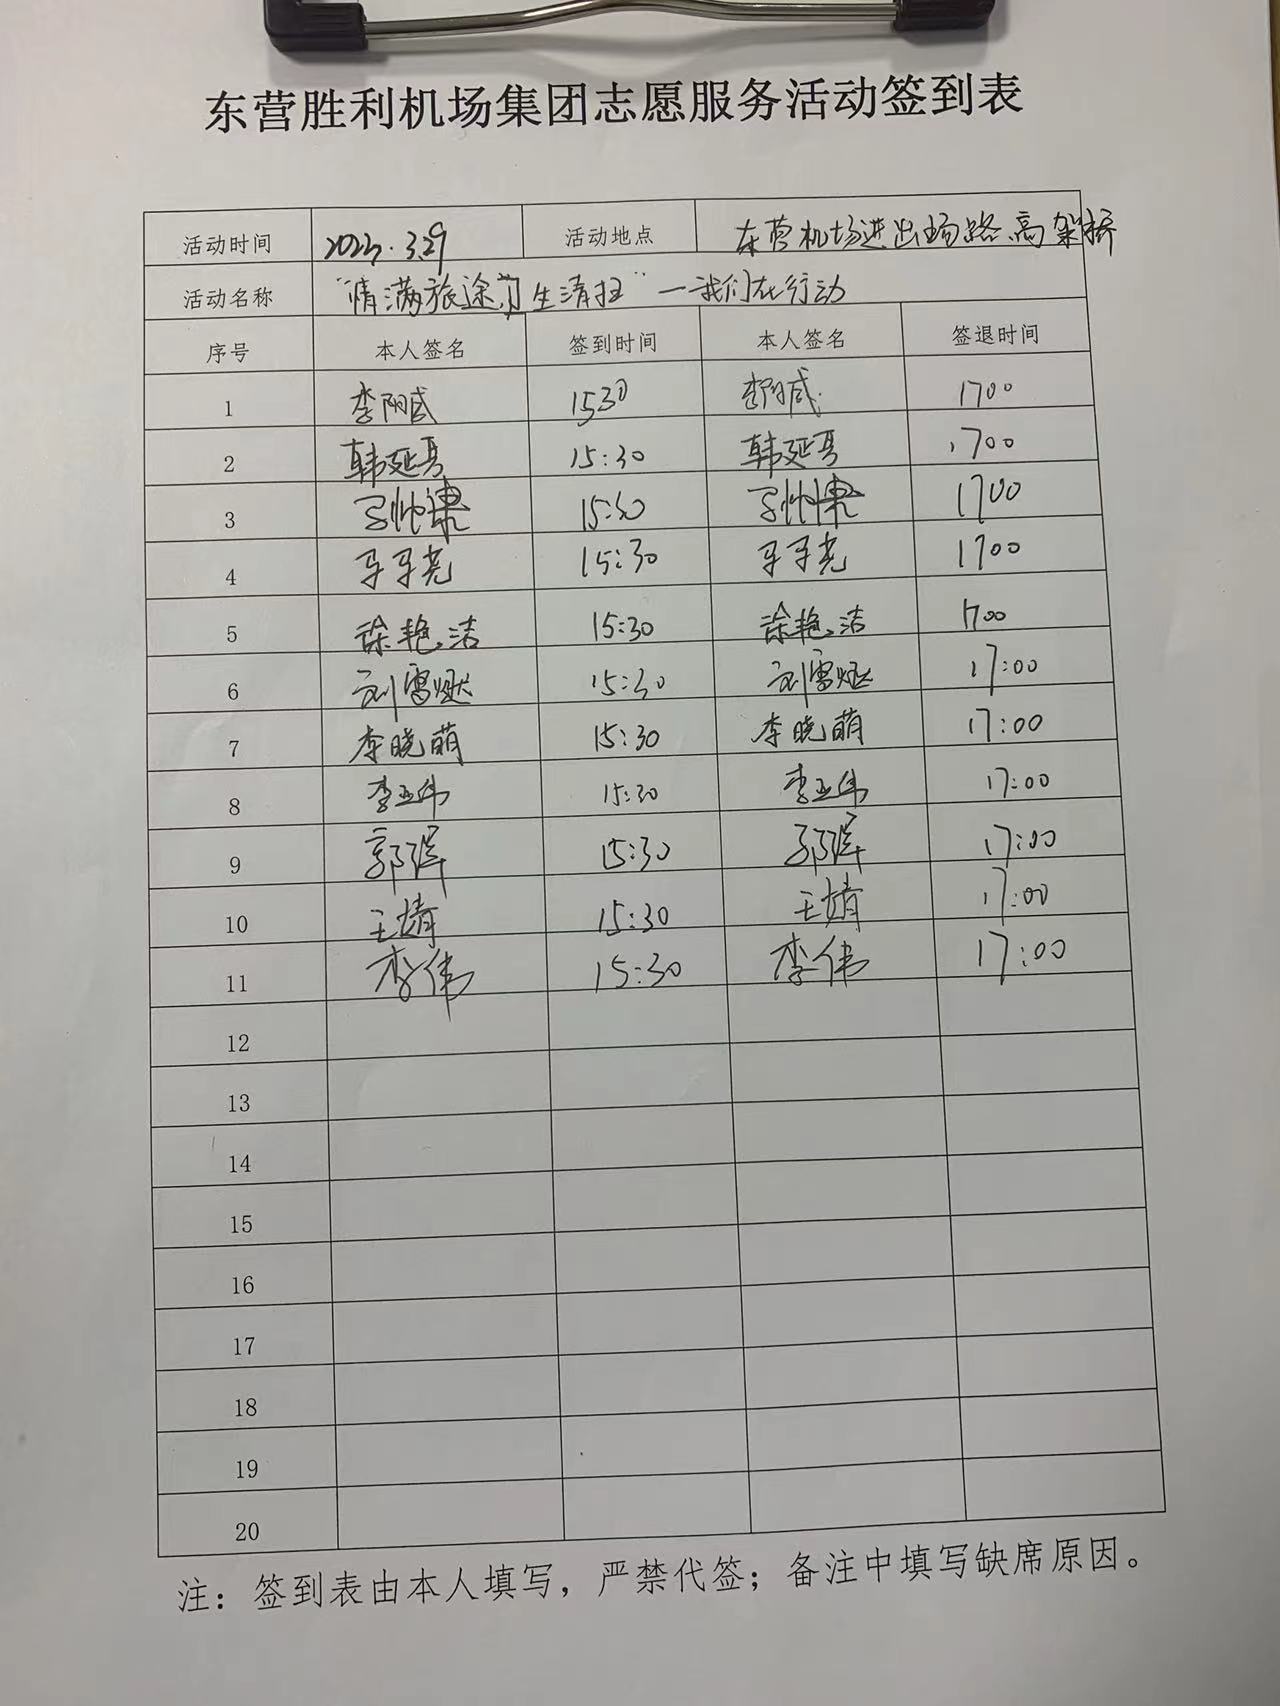 东营胜利机场集团志愿服务活动签到表
活动时间 3.29 活动地点 东营机场进出场路、高架桥
活动名称 "情满旅途,卫生清扫"一我们在行动
序号 本人签名 签到时间 本人签名 签退时间
1 李阳威 1530 李阳威 1700
2 韩延 15:30 韩延 1700
3 15:30 1700
4 15:30 1700
5 徐艳洁 15:30 徐艳洁 1700
6 刘雪 15:30 刘雪 17:00
7 李晓萌 15:30 李晓萌 17:00
8 李亚伟 15:30 李亚伟 17:00
9 郭 15:30 郭 17:00
10 王婧 15:30 王婧 17:00
11 李伟 15:30 李伟 17:00
12
13
14
15
16
17
18
19
20
注：签到表由本人填写，严禁代签；备注中填写缺席原因。